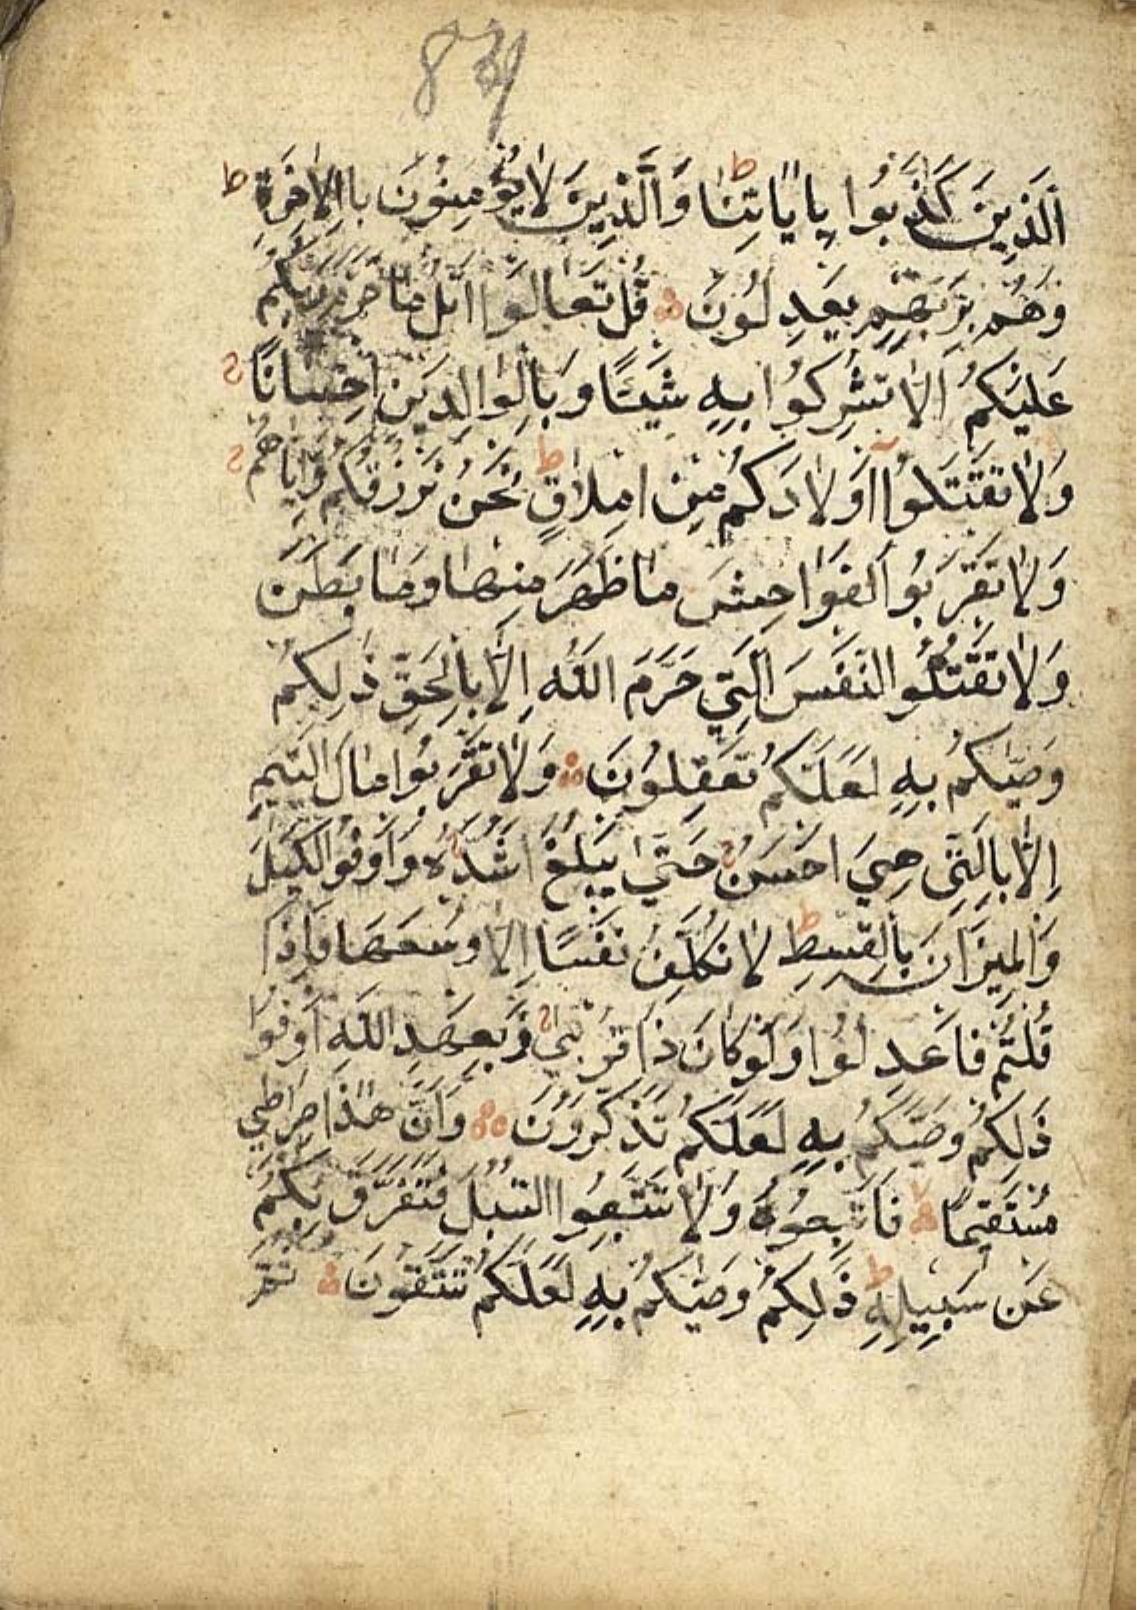 839
اَلَّذِينَ كَذَّبُوا بِاٰيَاتِنَا ط وَالَّذِينَ لَا يُؤْمِنُونَ بِاالْاٰخِرَةِ ط
وَهُمْ بِرَبِّهِمْ يَعْدِلُونَ قُلْ تَعَالَوْا اَتْلُ مَا حَرَّمَ رَبُّكُمْ
عَلَيْكُمْ اَلَّا تُشْرِكُوا بِهِ شَيْئًا وَبِالْوَالِدَيْنِ اِحْسَانًا
وَلَا تَقْتُلُوا اَوْلَادَكُمْ مِنْ اِمْلَاقٍ ط نَحْنُ نَرْزُقُكُمْ وَاِيَّاهُمْ
وَلَا تَقْرَبُوا الْفَوَاحِشَ مَا ظَهَرَ مِنْهَا وَمَا بَطَنَ
وَلَا تَقْتُلُوا النَّفْسَ الَّتِي حَرَّمَ اللّٰهُ اِلَّا بِالْحَقِّ ذٰلِكُمْ
وَصّٰيكُمْ بِهِ لَعَلَّكُمْ تَعْقِلُونَ وَلَا تَقْرَبُوا مَالَ الْيَتِيمِ
اِلَّا بِالَّتِي هِيَ اَحْسَنُ حَتّٰى يَبْلُغَ اَشُدَّهُ وَاَوْفُوا الْكَيْلَ
وَالْمِيزَانَ بِالْقِسْطِ ط لَا نُكَلِّفُ نَفْسًا اِلَّا وُسْعَهَا وَاِذَا
قُلْتُمْ فَاعْدِلُوا وَلَوْ كَانَ ذَا قُرْبٰى وَبِعَهْدِ اللّٰهِ اَوْفُوا
ذٰلِكُمْ وَصّٰكُمْ بِهِ لَعَلَّكُمْ تَذَكَّرُوونَ وَاَنَّ هٰذَا صِرَاطِي
مُسْتَقِيمًا فَاتَّبِعُوهُ وَلَا تَتَّبِعُوا السُّبُلَ فَتَفَرَّقَ بِكُمْ
عَنْ سَبِيلِهِ ط ذٰلِكُمْ وَصّٰيكُمْ بِهِ لَعَلَّكُمْ تَتَّقُونَ ثُمَّ